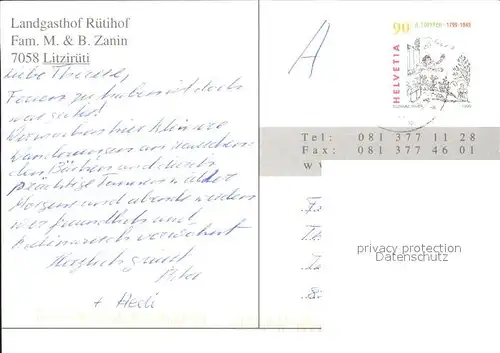 Landgasthof Rütihof
Fam. M. & B. Zanin
7058 Litzirüti
Liebe Therese,
Ferien zu haben ist doch
was gutes!
Wir machen hier kleinere
Wanderungen an rauschen-
den Bächen und durch
prächtige Tannenwälder
Morgens und abends werden
wir freundlich und
kulinarisch verwöhnt
Herzlich grüsst
+ Hedi
A
90
R. TÖPFFER · 1799-1846
HELVETIA
Tel: 081 377 11 28
Fax: 081 377 46 01
privacy protection
Datenschutz